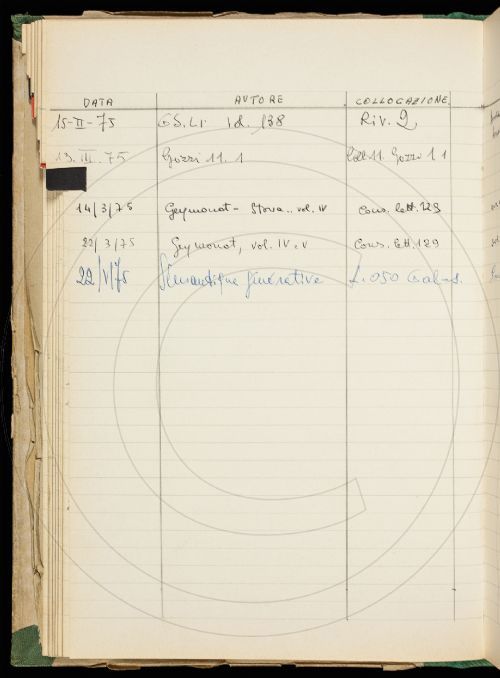 DATA AUTORE COLLOCAZIONE
15-II-75 GS.LI 138 Riv. 2
13.III.75 Gozzi 11.1 Coll 11. Gozzi 1 1
14/3/75 Geymonat - Storia.. vol. IV Cons. lett. 129
22/3/75 Geymonat, vol. IV e V Cons. lett. 129
22/V/75 Sémantique générative L. 050